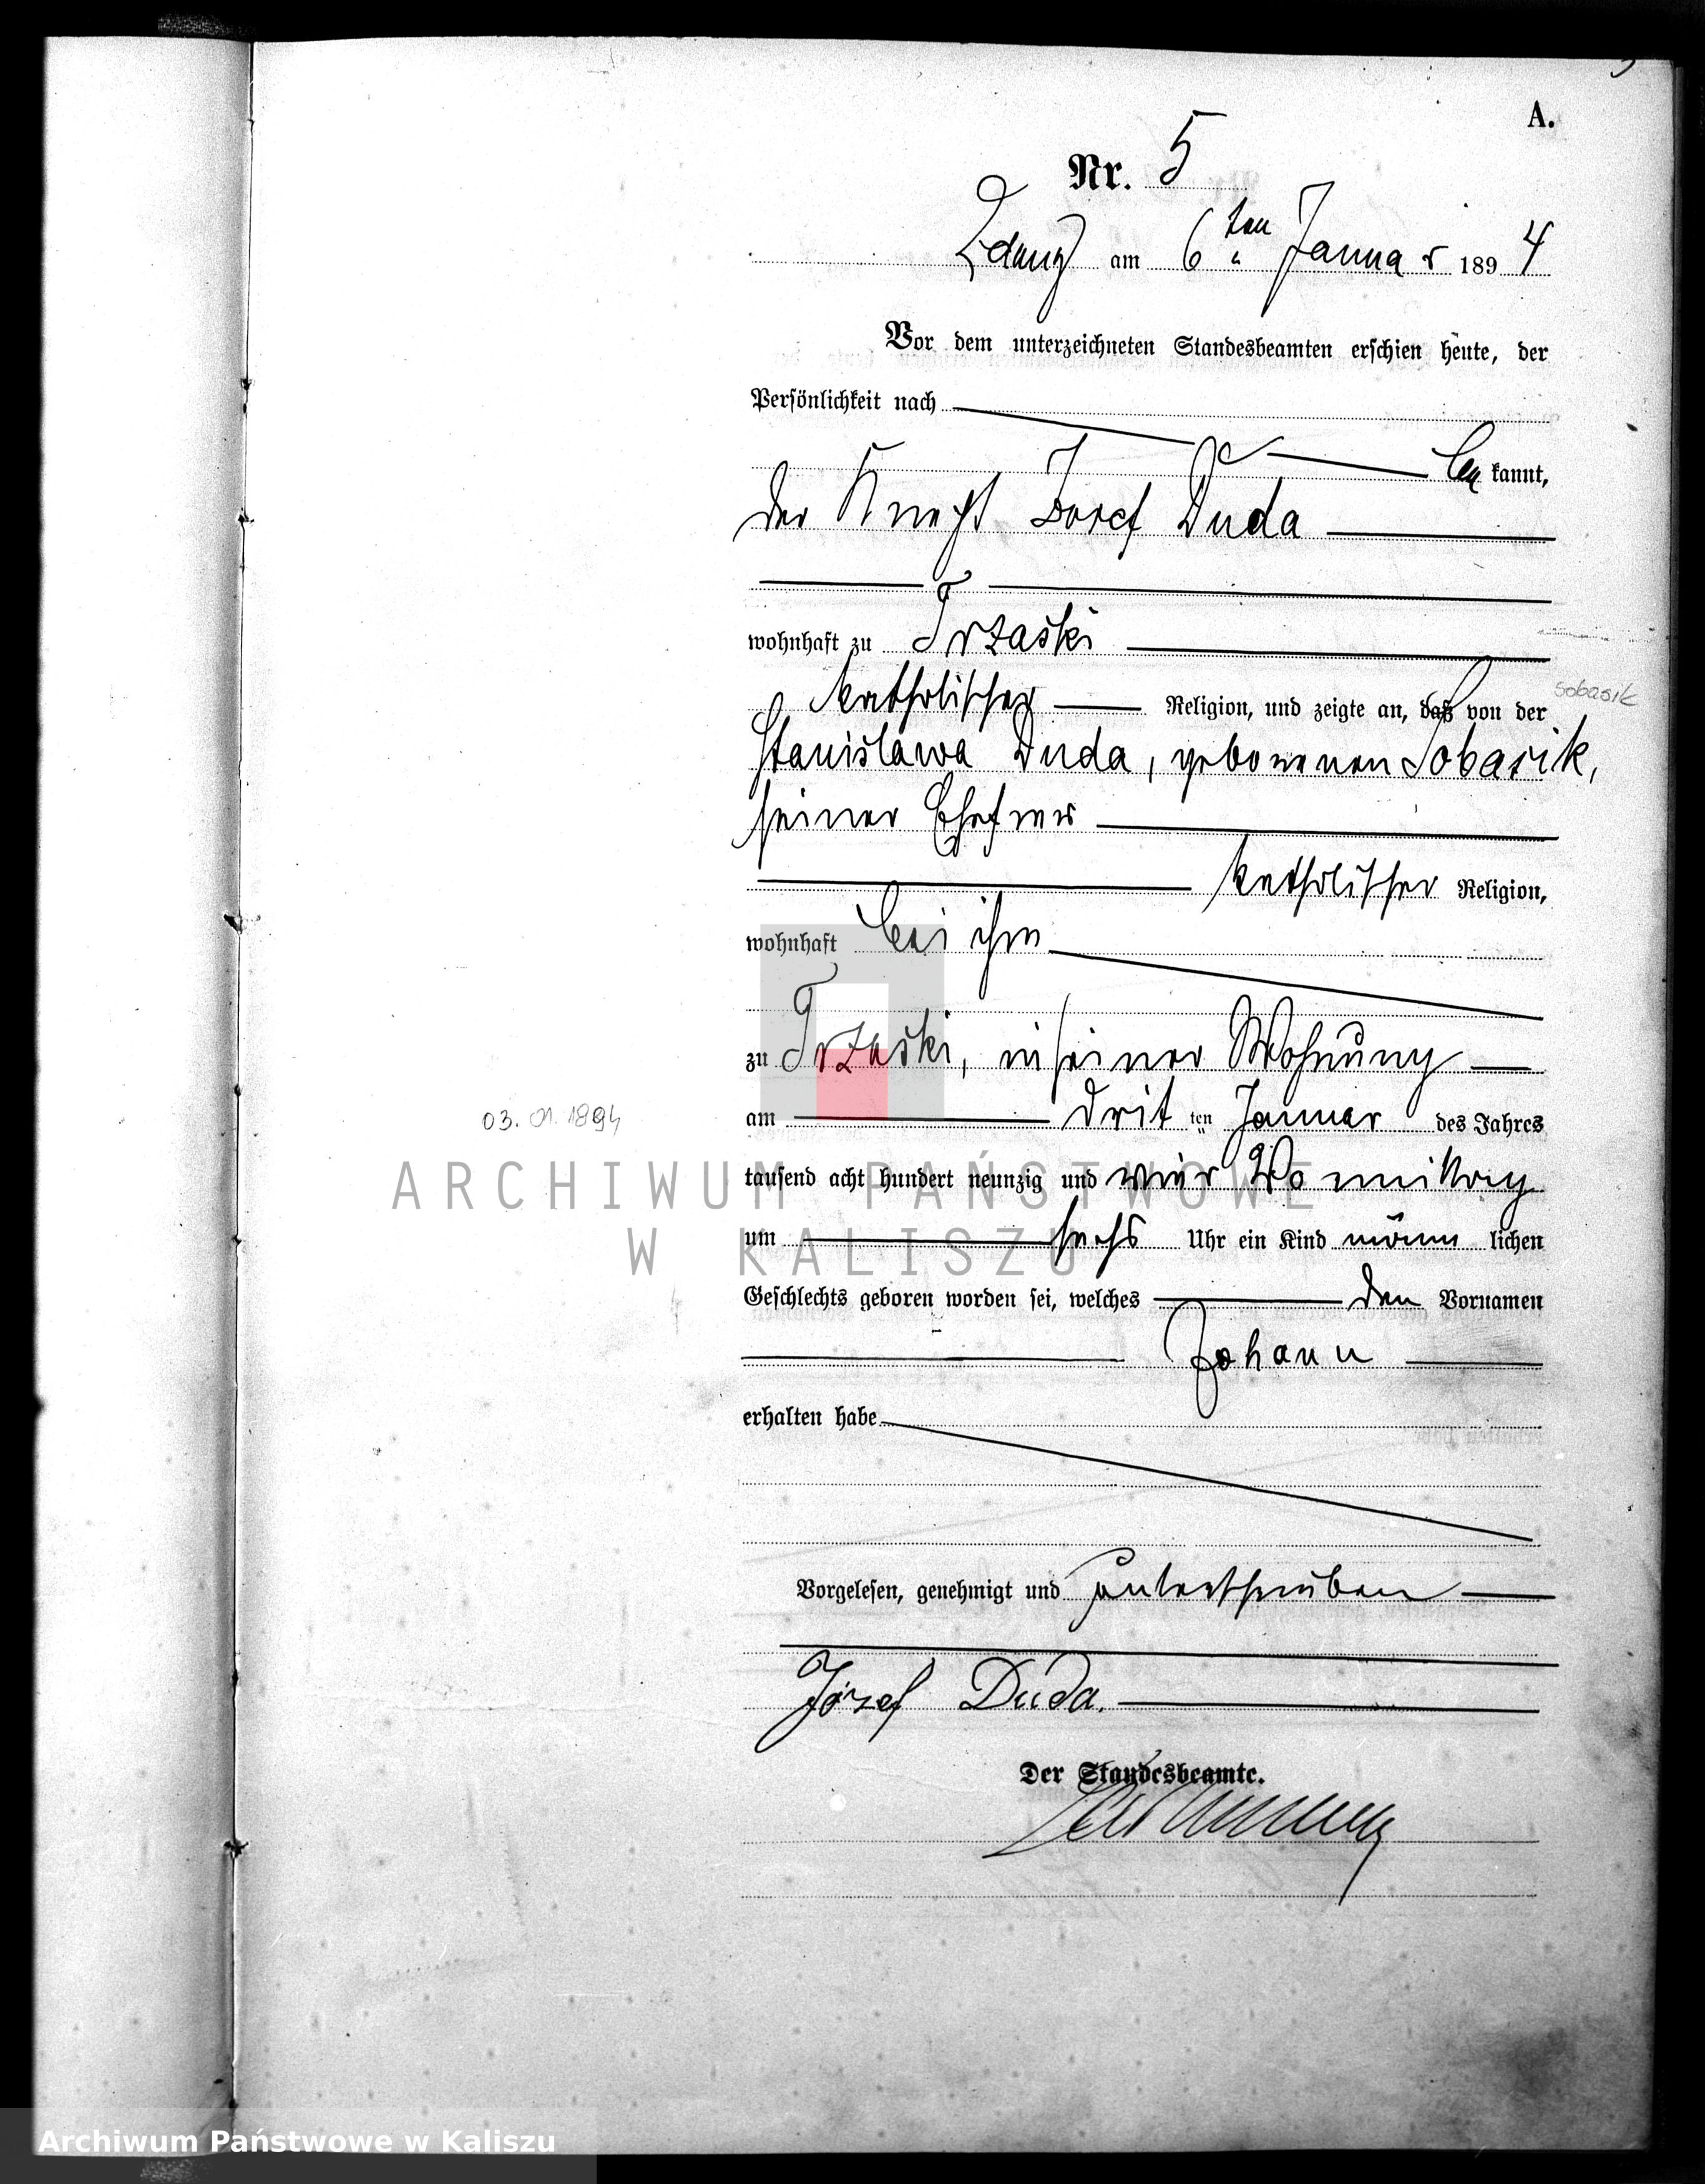 A.
Nr. 5
Zduny am 6ten Januar 1894
Vor dem unterzeichneten Standesbeamten erschien heute, der
Persönlichkeit nach
bekannt,
der Knecht Josef Duda
wohnhaft zu Trzaski
katholischer Religion, und zeigte an, daß von der
sobasik
Stanislawa Duda, geborenen Sobasik,
seiner Ehefrau
katholischer Religion,
wohnhaft bei ihm
zu Trzaski, in seiner Wohnung
am dritten Januar des Jahres
03.01.1894
tausend acht hundert neunzig und vier Vormittags
um sechs Uhr ein Kind männlichen
Geschlechts geboren worden sei, welches den Vornamen
Johann
erhalten habe
Vorgelesen, genehmigt und unterschrieben
Józef Duda.
Der Standesbeamte.
ARCHIWUM PAŃSTWOWE
W KALISZU
Archiwum Państwowe w Kaliszu